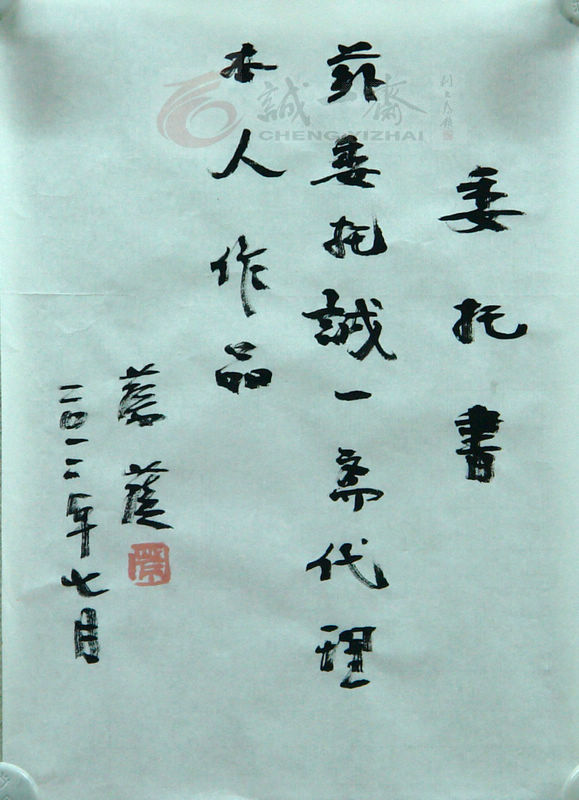 委托書
兹委托誠一斋代理
本人作品
二〇一二年七月
誠一齋
CHENG YIZHAI